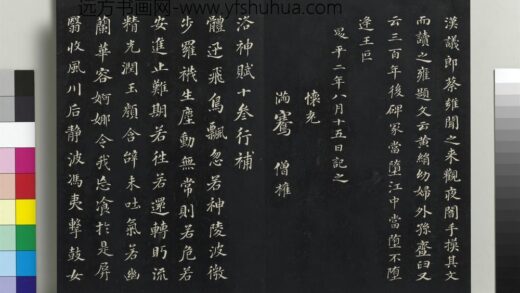 远方书画网-www.yfshuhua.com
漢議郎蔡雍聞之来觀夜闇手摸其文
而讀之雍題文云黃絹幼婦外孫齏臼又
云三百年後碑冢當墮江中當墮不墮
逢王叵
昇平二年八月十五日記之
懷充
滿騫 僧權
洛神賦十叁行補
體迅飛鳧飄忽若神陵波微
步羅襪生塵動無常則若危若
安進止難期若往若還轉眄流
精光潤玉顏含辭未吐氣若幽
蘭華容婀娜令我忘飡於是屏
翳收風川后靜波馮夷擊鼓女